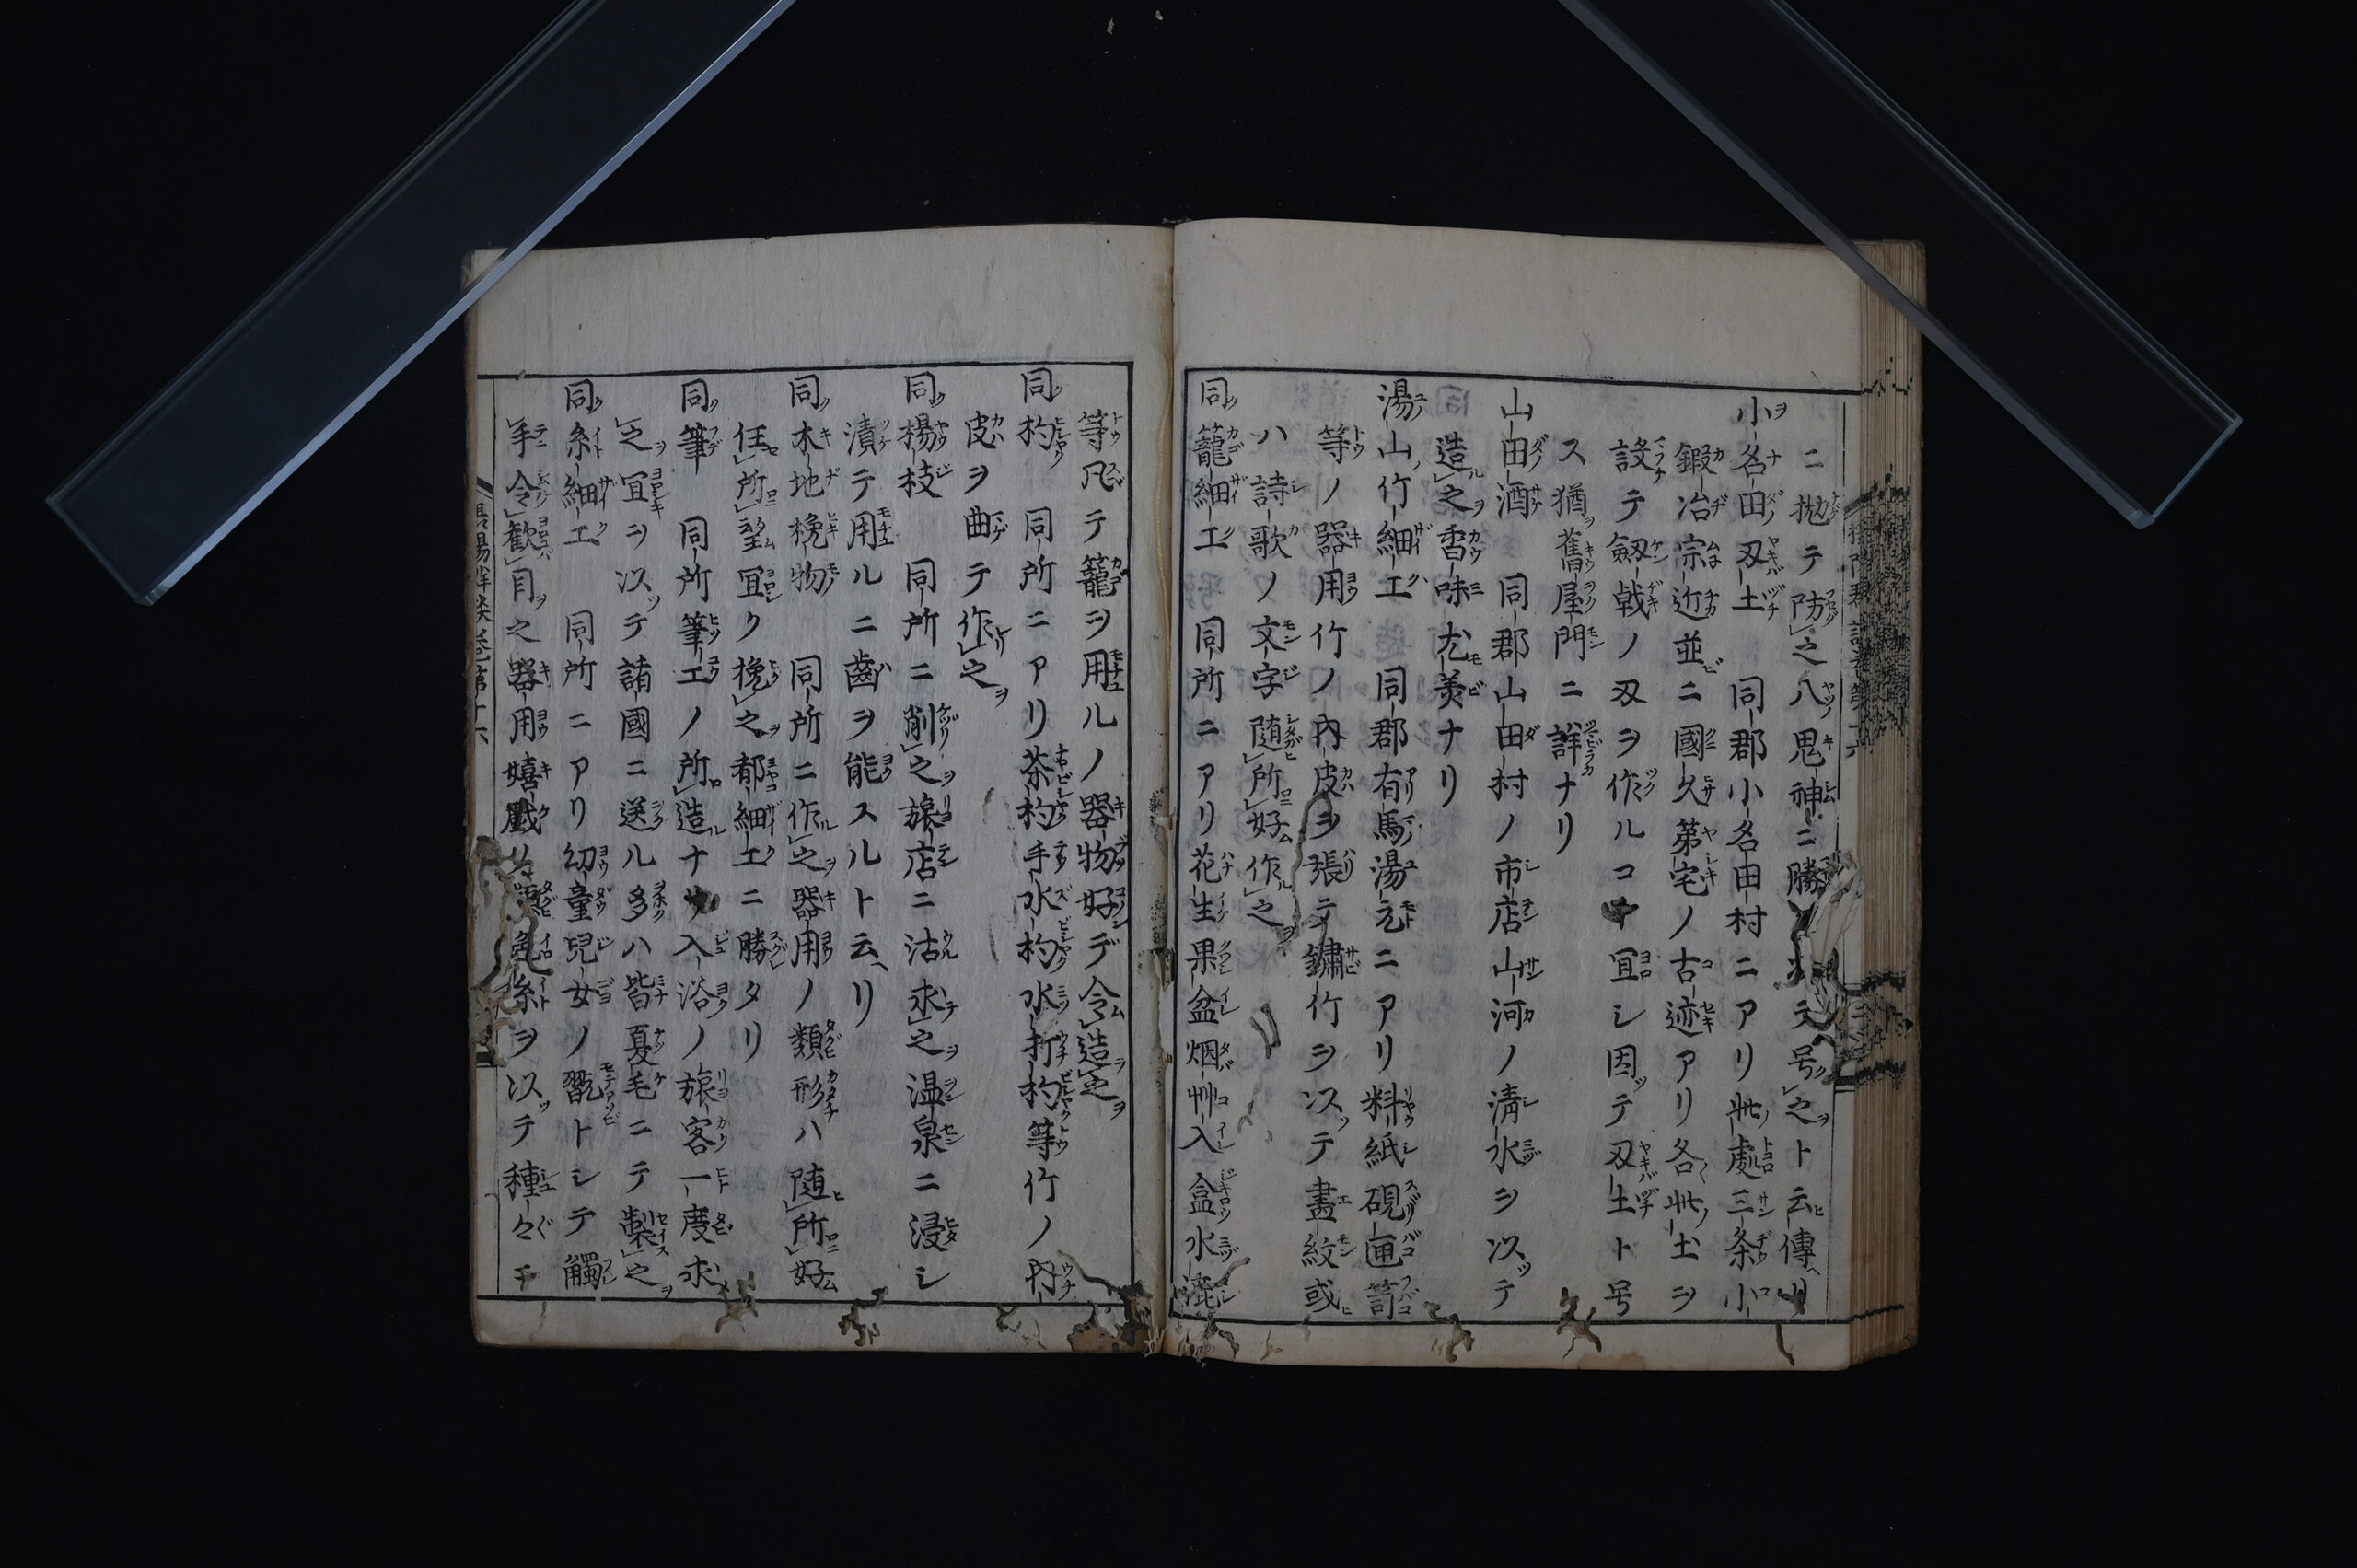 ニ抛テ防之八鬼神ニ勝号之ト云傳
小名田刄土　同郡小名田村ニアリ此處三条小
鍜冶宗近並ニ國久第宅ノ古迹アリ各此土ヲ
設テ劔戟ノ刄ヲ作ルコ宜シ因テ刄土ト号
ス猶舊屋門ニ詳ナリ
山田酒　同郡山田村ノ市店山河ノ清水ヲ以テ
造之香味尤美ナリ
湯山竹細工　同郡有馬湯元ニアリ料紙硯匣笥
等ノ器用竹ノ內皮ヲ張テ鏽竹ヲ以テ畫紋或
ハ詩歌ノ文字随所好作之
同籠細工　同所ニアリ花生果盆烟艸入盒水漉
等凡テ籠ヲ用ルノ器物好デ令造之
同杓　同所ニアリ茶杓手水杓水打杓等竹ノ內
皮ヲ曲テ作之
同楊枝　同所ニ削之旅店ニ沽求之温泉ニ浸シ
漬テ用ルニ齒ヲ能スルト云リ
同木地挽物　同所ニ作之器用ノ類形ハ随所好
任所望宜ク挽之都細工ニ勝タリ
同筆　同所筆工ノ所造ナリ入浴ノ旅客一度求
之宜ヲ以テ諸國ニ送ル多ハ皆夏毛ニテ製之
同糸細工　同所ニアリ幼童兒女ノ翫トシテ觸
手令歡目之器用嬉戲色糸ヲ以テ種々